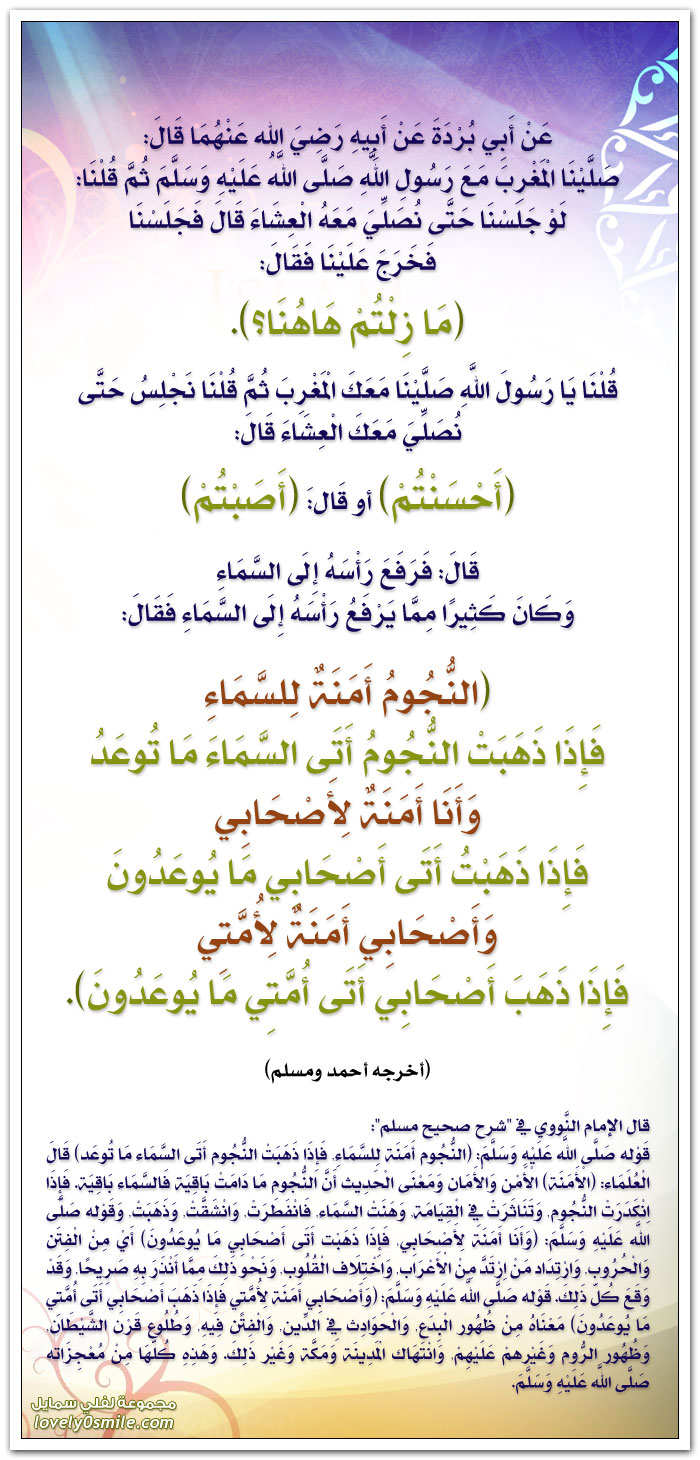 عَنْ أَبِي بُرْدَةَ عَنْ أَبِيهِ رَضِيَ الله عَنْهُمَا قَالَ:
صَلَّيْنَا الْمَغْرِبَ مَعَ رَسُولِ اللَّهِ صَلَّى اللَّهُ عَلَيْهِ وَسَلَّمَ ثُمَّ قُلْنَا:
لَوْ جَلَسْنَا حَتَّى نُصَلِّيَ مَعَهُ الْعِشَاءَ قَالَ فَجَلَسْنَا
فَخَرَجَ عَلَيْنَا فَقَالَ:
(مَا زِلْتُمْ هَاهُنَا؟).
قُلْنَا يَا رَسُولَ اللَّهِ صَلَّيْنَا مَعَكَ الْمَغْرِبَ ثُمَّ قُلْنَا نَجْلِسُ حَتَّى
نُصَلِّيَ مَعَكَ الْعِشَاءَ قَالَ:
(أَحْسَنْتُمْ) أو قَالَ: (أَصَبْتُمْ)
قَالَ: فَرَفَعَ رَأْسَهُ إِلَى السَّمَاءِ
وَكَانَ كَثِيرًا مِمَّا يَرْفَعُ رَأْسَهُ إِلَى السَّمَاءِ فَقَالَ:
(النُّجُومُ أَمَنَةٌ لِلسَّمَاءِ
فَإِذَا ذَهَبَتْ النُّجُومُ أَتَى السَّمَاءَ مَا تُوعَدُ
وَأَنَا أَمَنَةٌ لِأَصْحَابِي
فَإِذَا ذَهَبْتُ أَتَى أَصْحَابِي مَا يُوعَدُونَ
وَأَصْحَابِي أَمَنَةٌ لِأُمَّتِي
فَإِذَا ذَهَبَ أَصْحَابِي أَتَى أُمَّتِي مَا يُوعَدُونَ).
(أخرجه أحمد ومسلم)
قال الإمام النَّووي في "شرح صحيح مسلم":
قَوْله صَلَّى اللَّه عَلَيْهِ وَسَلَّمَ: (النُّجُوم أَمَنَة لِلسَّمَاءِ، فَإِذَا ذَهَبَتْ النُّجُوم أَتَى السَّمَاء مَا تُوعَد) قَالَ
الْعُلَمَاء: (الأَمَنَة) الأَمْن وَالأَمَان وَمَعْنَى الْحَدِيث أَنَّ النُّجُوم مَا دَامَتْ بَاقِيَة فَالسَّمَاء بَاقِيَة. فَإِذَا
اِنْكَدَرَتْ النُّجُوم، وَتَنَاثَرَتْ فِي الْقِيَامَة، وَهَنَتْ السَّمَاء، فَانْفَطَرَتْ، وَانْشَقَّتْ، وَذَهَبَتْ، وَقَوْله صَلَّى
اللَّه عَلَيْهِ وَسَلَّمَ: (وَأَنَا أَمَنَة لأَصْحَابِي، فَإِذَا ذَهَبْت أَتَى أَصْحَابِي مَا يُوعَدُونَ) أَيْ مِنْ الْفِتَن
وَالْحُرُوب، وَارْتِدَاد مَنْ اِرْتَدَّ مِنْ الأَعْرَاب، وَاخْتِلاف الْقُلُوب، وَنَحْو ذَلِكَ مِمَّا أَنْذَرَ بِهِ صَرِيحًا، وَقَدْ
وَقَعَ كُل ذَلِكَ، قَوْله صَلَّى اللَّه عَلَيْهِ وَسَلَّمَ: (وَأَصْحَابِي أَمَنَة لأُمَّتِي فَإِذَا ذَهَبَ أَصْحَابِي أَتَى أُمَّتِي
مَا يُوعَدُونَ) مَعْنَاهُ مِنْ ظُهُور الْبِدَع، وَالْحَوَادِث فِي الدِّين، وَالْفِتَن فِيهِ، وَطُلُوع قَرْن الشَّيْطَان،
وَظُهُور الرُّوم وَغَيْرهمْ عَلَيْهِمْ، وَانْتَهَاك الْمَدِينَة وَمَكَّة وَغَيْر ذَلِكَ، وَهَذِهِ كُلّهَا مِنْ مُعْجِزَاته
صَلَّى اللَّه عَلَيْهِ وَسَلَّمَ.
مجموعة لفلي سمايل
lovely0smile.com